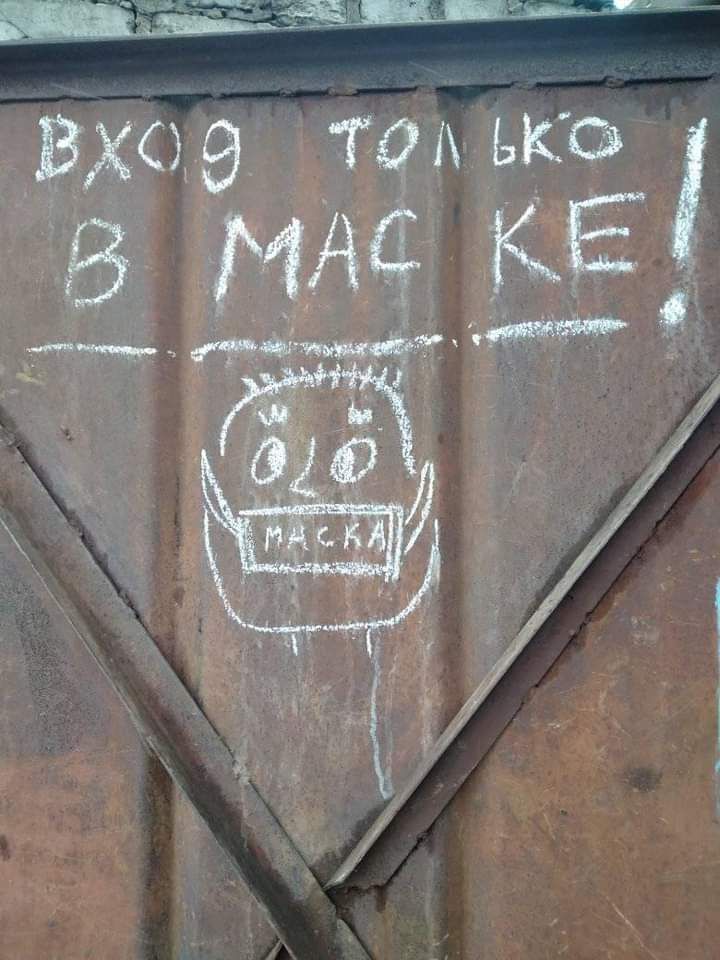 ВХОД ТОЛЬКО
В МАСКЕ!
МАСКА